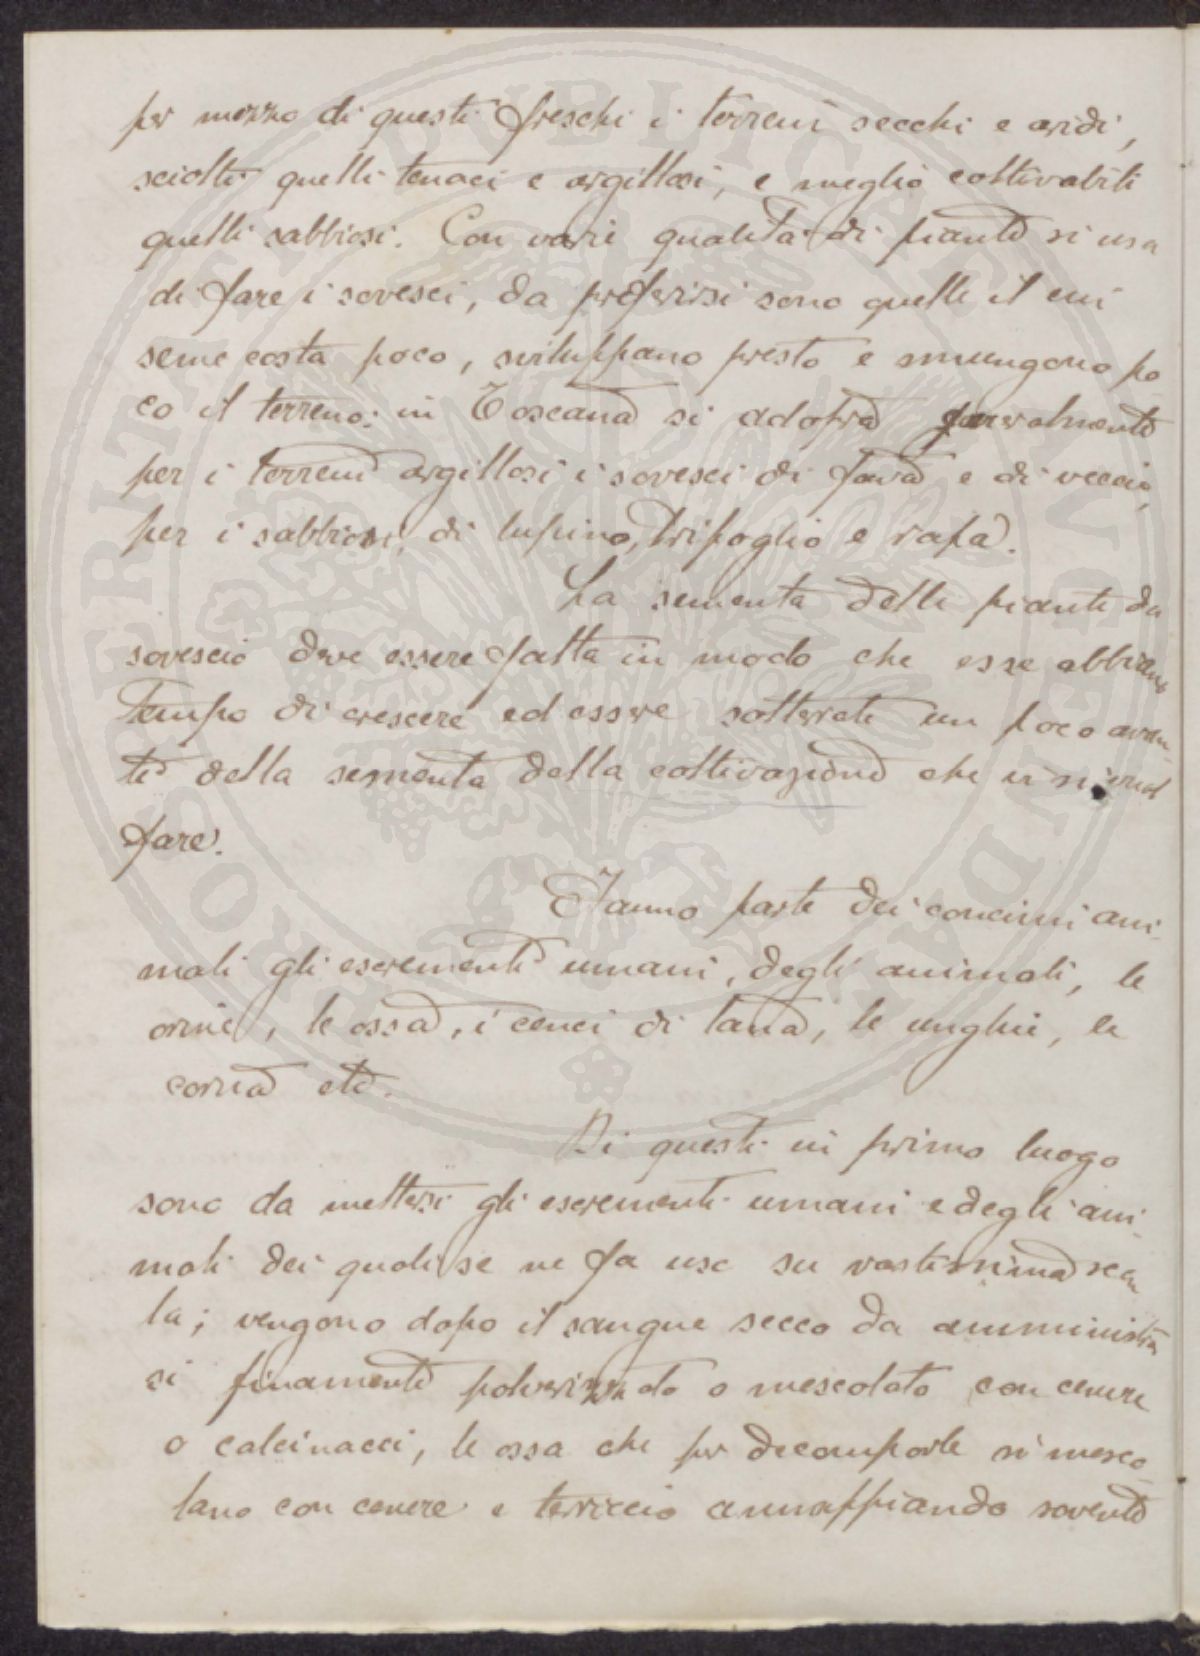 per mezzo di questi freschi i terreni secchi e aridi,
sciolti quelli tenaci e argillosi, e meglio coltivabili
quelli sabbiosi. Con varie qualità di piante si usa
di fare i sovesci, da preferirsi sono quelle il cui
seme costa poco, sviluppano presto e smungono po
co il terreno: in Toscana si adopra
per i terreni argillosi i sovesci di fava e di veccia,
per i sabbiosi, di lupino, trifoglio e rapa.
La sementa delle piante da
sovescio deve essere fatta in modo che esse abbiano
tempo di crescere ed essere sotterrate un poco avan-
ti della sementa della coltivazione che vi si vuol
fare.
Fanno parte dei concimi ani-
mali gli escrementi umani, degli animali, le
orine, le ossa, i cenci di lana, le unghie, le
corna etc.
Di questi in primo luogo
sono da mettersi gli escrementi umani e degli ani-
mali dei quali se ne fa uso su vastissima sca
la; vengono dopo il sangue secco da amministrar
si finamente polverizzato o mescolato con cenere
o calcinacci, le ossa che per decomporle si mesco-
lano con cenere e terriccio annaffiando sovente